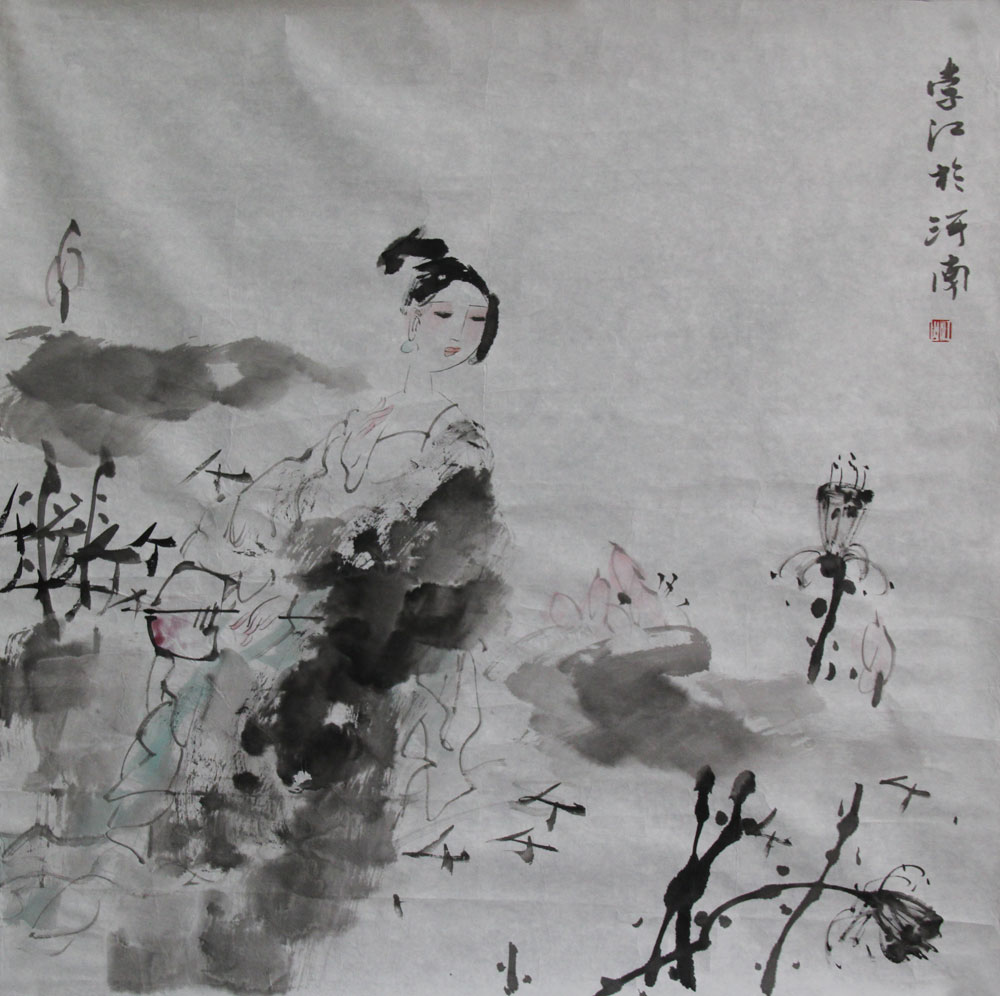 李江於河南